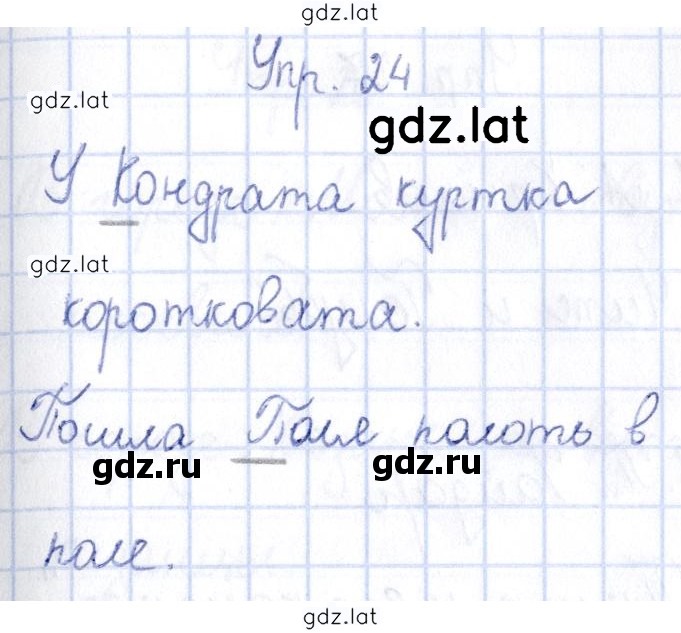 gdz.lat
Упр. 24
gdz.lat
gdz.lat
У Кондрата куртка
gdz.lat
коротковата.
Пошла Поля полоть в
gdz.ru gdz.ru
поле.
gdz.lat